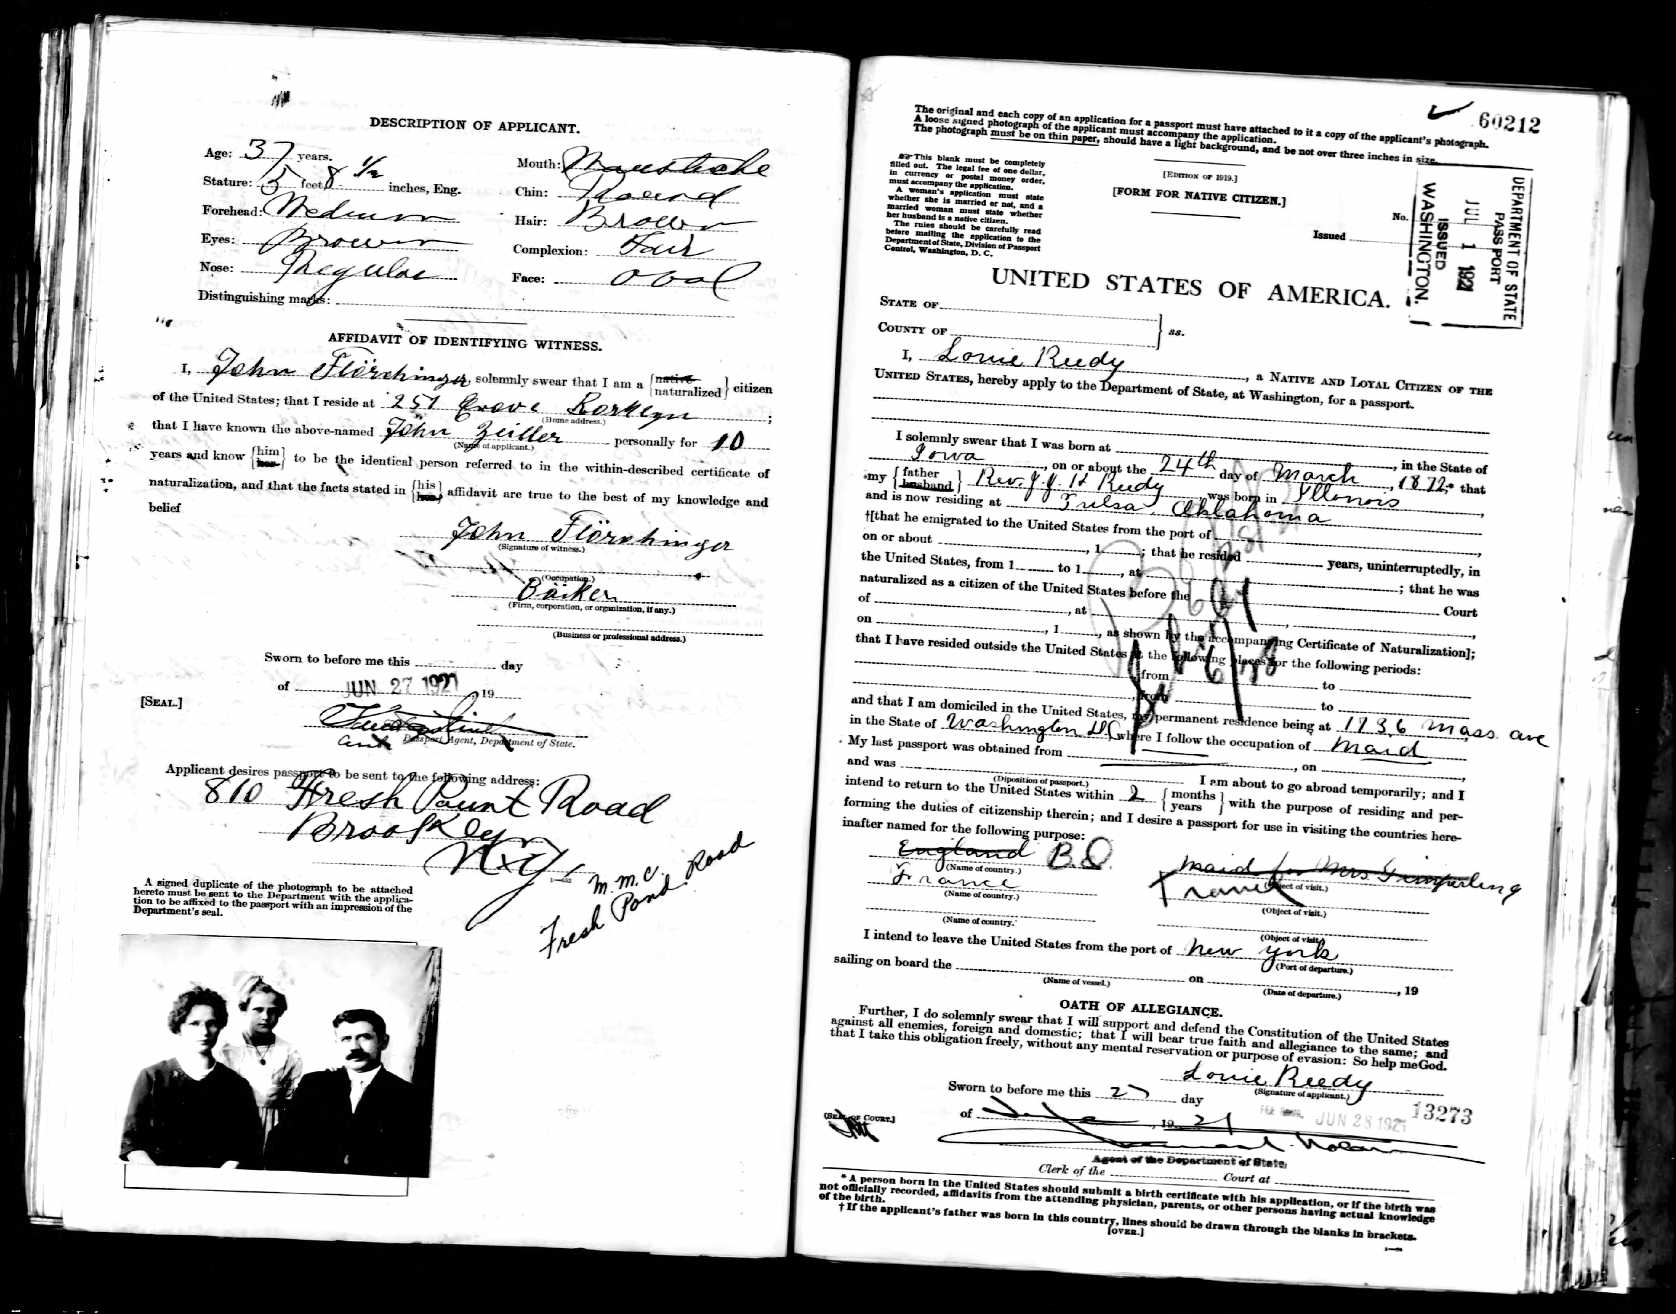 DESCRIPTION OF APPLICANT.
Age: 37 years.
Mouth: Moustache
Stature: 5 feet 8 1/2 inches, Eng.
Chin: Round
Forehead: Medium
Hair: Brown
Eyes: Brown
Complexion: Fair
Nose: Regular
Face: Oval
Distinguishing marks:
AFFIDAVIT OF IDENTIFYING WITNESS.
I, John Flörchinger, solemnly swear that I am a {native naturalized} citizen
of the United States; that I reside at 257 Grove
(Home address.)
that I have known the above-named John Zeiller personally for 10
(Name of applicant.)
years and know {him her} to be the identical person referred to in the within-described certificate of
naturalization, and that the facts stated in {his her} affidavit are true to the best of my knowledge and
belief
John Flörchinger
(Signature of witness.)
(Occupation.)
Baker
(Firm, corporation, or organization, if any.)
(Business or professional address.)
Sworn to before me this day
of JUN 27 1921, 19
[SEAL.]
Passport Agent, Department of State.
Applicant desires passport to be sent to the following address:
810 Fresh Pount Road
Brooklyn
N.Y.
M.M.C.
Fresh Pond Road
A signed duplicate of the photograph to be attached
hereto must be sent to the Department with the applica-
tion to be affixed to the passport with an impression of the
Department's seal.
60212
The original and each copy of an application for a passport must have attached to it a copy of the applicant's photograph.
A loose signed photograph of the applicant must accompany the application.
The photograph must be on thin paper, should have a light background, and be not over three inches in size.
This blank must be completely
filled out. The legal fee of one dollar,
in currency or postal money order,
must accompany the application.
A woman's application must state
whether she is married or not, and a
married woman must state whether
her husband is a native citizen.
The rules should be carefully read
before mailing the application to the
Department of State, Division of Passport
Control, Washington, D. C.
[EDITION OF 1919.]
[FORM FOR NATIVE CITIZEN.]
No.
Issued
DEPARTMENT OF STATE
PASSPORT
JUL 1 1921
ISSUED
WASHINGTON.
UNITED STATES OF AMERICA.
STATE OF
COUNTY OF } ss.
I, Louie Reedy, a NATIVE AND LOYAL CITIZEN OF THE
UNITED STATES, hereby apply to the Department of State, at Washington, for a passport.
I solemnly swear that I was born at , in the State of
Iowa, on or about the 24th day of March, 1872;* that
my {father husband} Rev. J. J. H Reedy was born in Illonois
and is now residing at Tulsa Oklahoma
†[that he emigrated to the United States from the port of
on or about , 1 ; that he resided years, uninterruptedly, in
the United States, from 1 to 1 , at
naturalized as a citizen of the United States before the ; that he was
of , at Court
on , 1 , as shown by the accompanying Certificate of Naturalization];
that I have resided outside the United States at the following places for the following periods:
from to
, from to
and that I am domiciled in the United States, my permanent residence being at 1836 Mass. ave
in the State of Washington D.C. where I follow the occupation of Maid
My last passport was obtained from , on
and was I am about to go abroad temporarily; and I
(Diposition of passport.)
intend to return to the United States within 2 {months years} with the purpose of residing and per-
forming the duties of citizenship therein; and I desire a passport for use in visiting the countries here-
inafter named for the following purpose:
England B.S. maid for Mrs
(Name of country.) (Object of visit.)
France Travel
(Name of country.) (Object of visit.)
(Name of country.) (Object of visit.)
I intend to leave the United States from the port of New York
(Port of departure.)
sailing on board the on , 19
(Name of vessel.) (Date of departure.)
OATH OF ALLEGIANCE.
Further, I do solemnly swear that I will support and defend the Constitution of the United States
against all enemies, foreign and domestic; that I will bear true faith and allegiance to the same; and
that I take this obligation freely, without any mental reservation or purpose of evasion: So help me God.
Louie Reedy
(Signature of applicant.)
Sworn to before me this 27 day
13273
[SEAL OF COURT.]
of June, 19 21
JUN 28 1921
Agent of the Department of State.
Clerk of the Court at
* A person born in the United States should submit a birth certificate with his application, or if the birth was
not officially recorded, affidavits from the attending physician, parents, or other persons having actual knowledge
of the birth.
† If the applicant's father was born in this country, lines should be drawn through the blanks in brackets.
[OVER.]